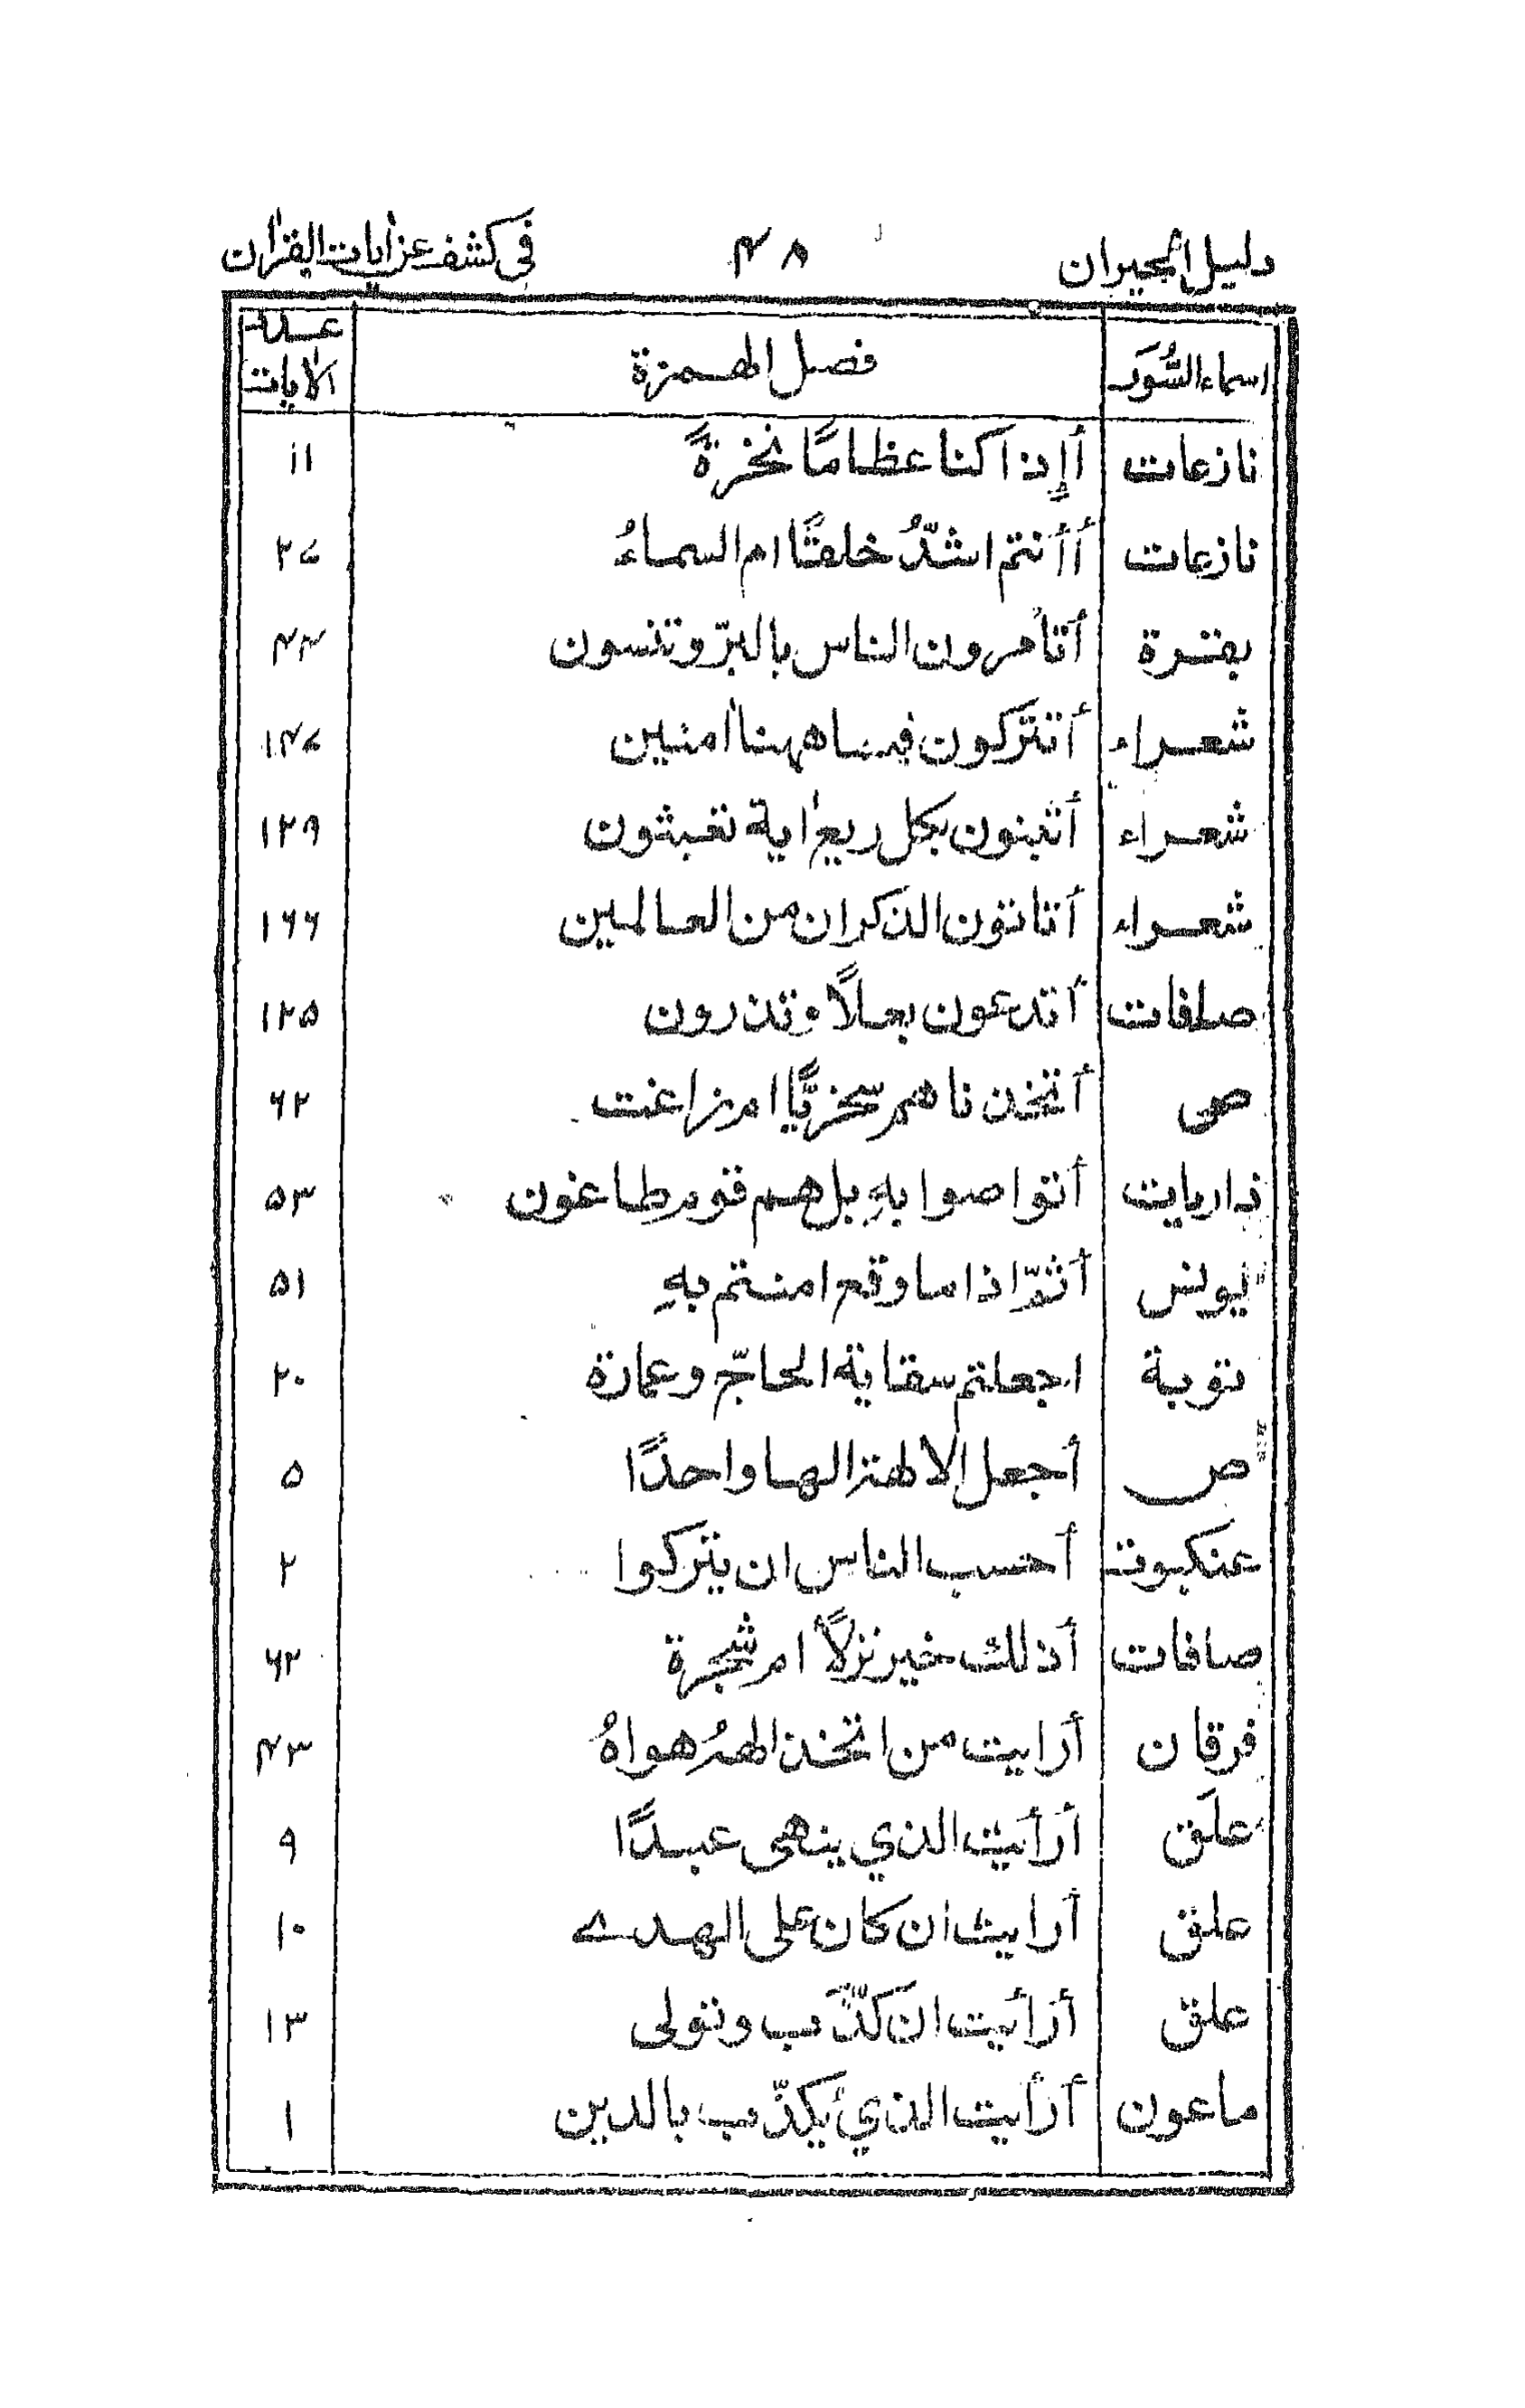 دليل الحيران ٤٨ في كشف عن اٰيات القراٰن
اسماء السُّوَر فصل الهمزة عدد الاٰيات
نازعات أإِذا كنا عظامًا نخرةً ١١
نازعات أأنتم اشدُّ خلقًا ام السماءُ ٢٧
بقرة أتأمرون الناس بالبرّ وتنسون ٤٣
شعراء أتتركون فيما ههنا اٰمنين ١٤٧
شعراء أتبنون بكل ريع اٰية تعبثون ١٢٩
شعراء أتاتون الذكران من العالمين ١٦٦
صافات أتدعون بعلًا وتذرون ١٢٥
ص أتخذناهم سخريًّا ام زاغت ٦٢
ذاريات أتواصوا بهِ بل هم قوم طاغون ٥٣
يونس أثمّ اذا ما وقع امنتم بهِ ٥١
توبة اجعلتم سقاية الحاجّ وعمارة ٢٠
ص أجعل الالهة الها واحدًا ٥
عنكبوت أحسب الناس ان يتركوا ٢
صافات أذلك خير نزلًا ام شجرة ٦٢
فرقان أرايت من اتخذ الههُ هواهُ ٤٣
علَق أرأيت الذي ينهى عبدًا ٩
علق أرايت ان كان على الهدے ١٠
علق أرأيت ان كذَّب وتولى ١٣
ماعون أرأيت الذي يكذّب بالدين ١